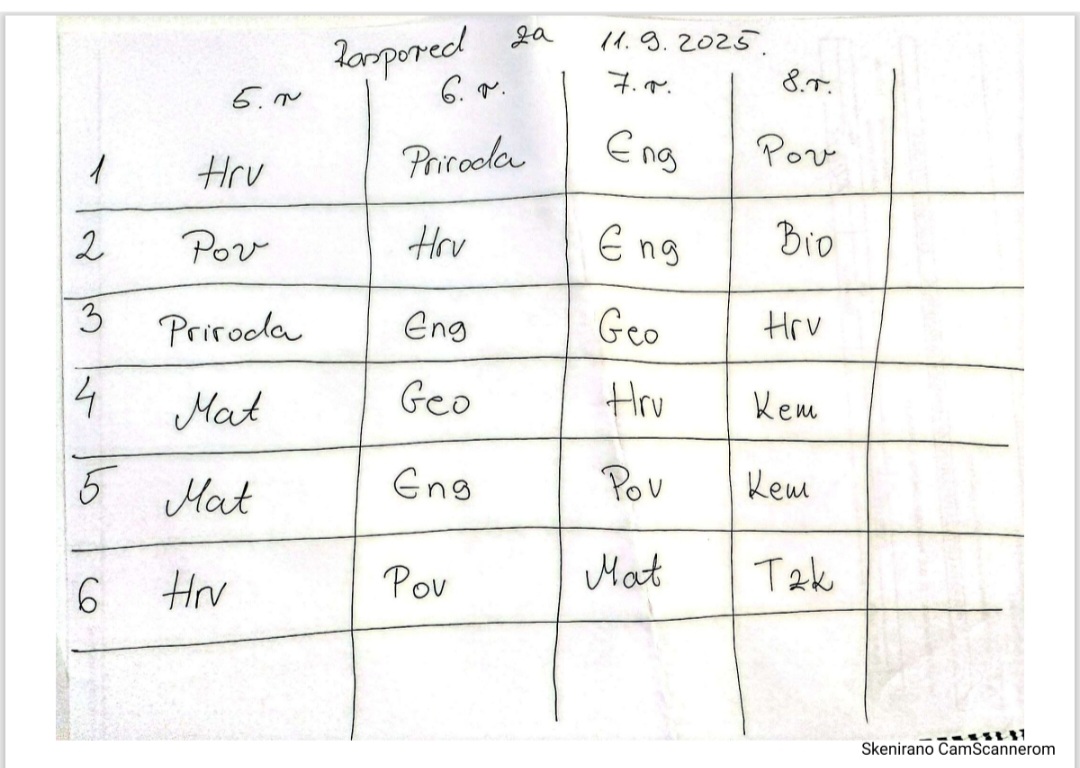 Raspored za 11.9.2025.
5.r 6.r. 7.r. 8.r.
1 Hrv Priroda Eng Pov
2 Pov Hrv Eng Bio
3 Priroda Eng Geo Hrv
4 Mat Geo Hrv Kem
5 Mat Eng Pov Kem
6 Hrv Pov Mat Tzk
Skenirano CamScannerom